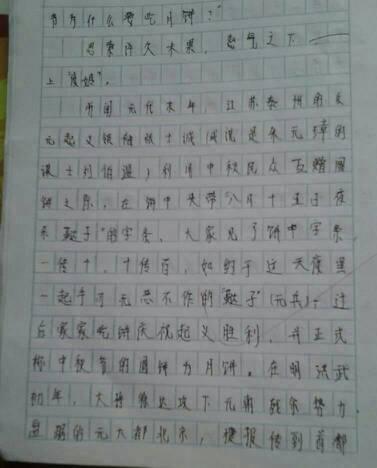 节为什么要吃月饼？"
思索许久未果，怒气之下——
上"度娘"。
所闻元代末年，江苏泰州的反
元起义领袖张士诚(或说是朱元璋的
谋士刘伯温)利用中秋民众互赠圆
饼之际，在饼中夹带"八月十五子夜
杀鞑子"的字条，大家见了饼中字条
一传十，十传百，如约于这天夜里
一起手刃无恶不作的"鞑子"(元兵)，过
后家家吃饼庆祝起义胜利，并正式
称中秋节的圆饼为月饼。在明洪武
初年，大将徐达攻下元朝残余势力
盘踞的元大都北京，捷报传到首都